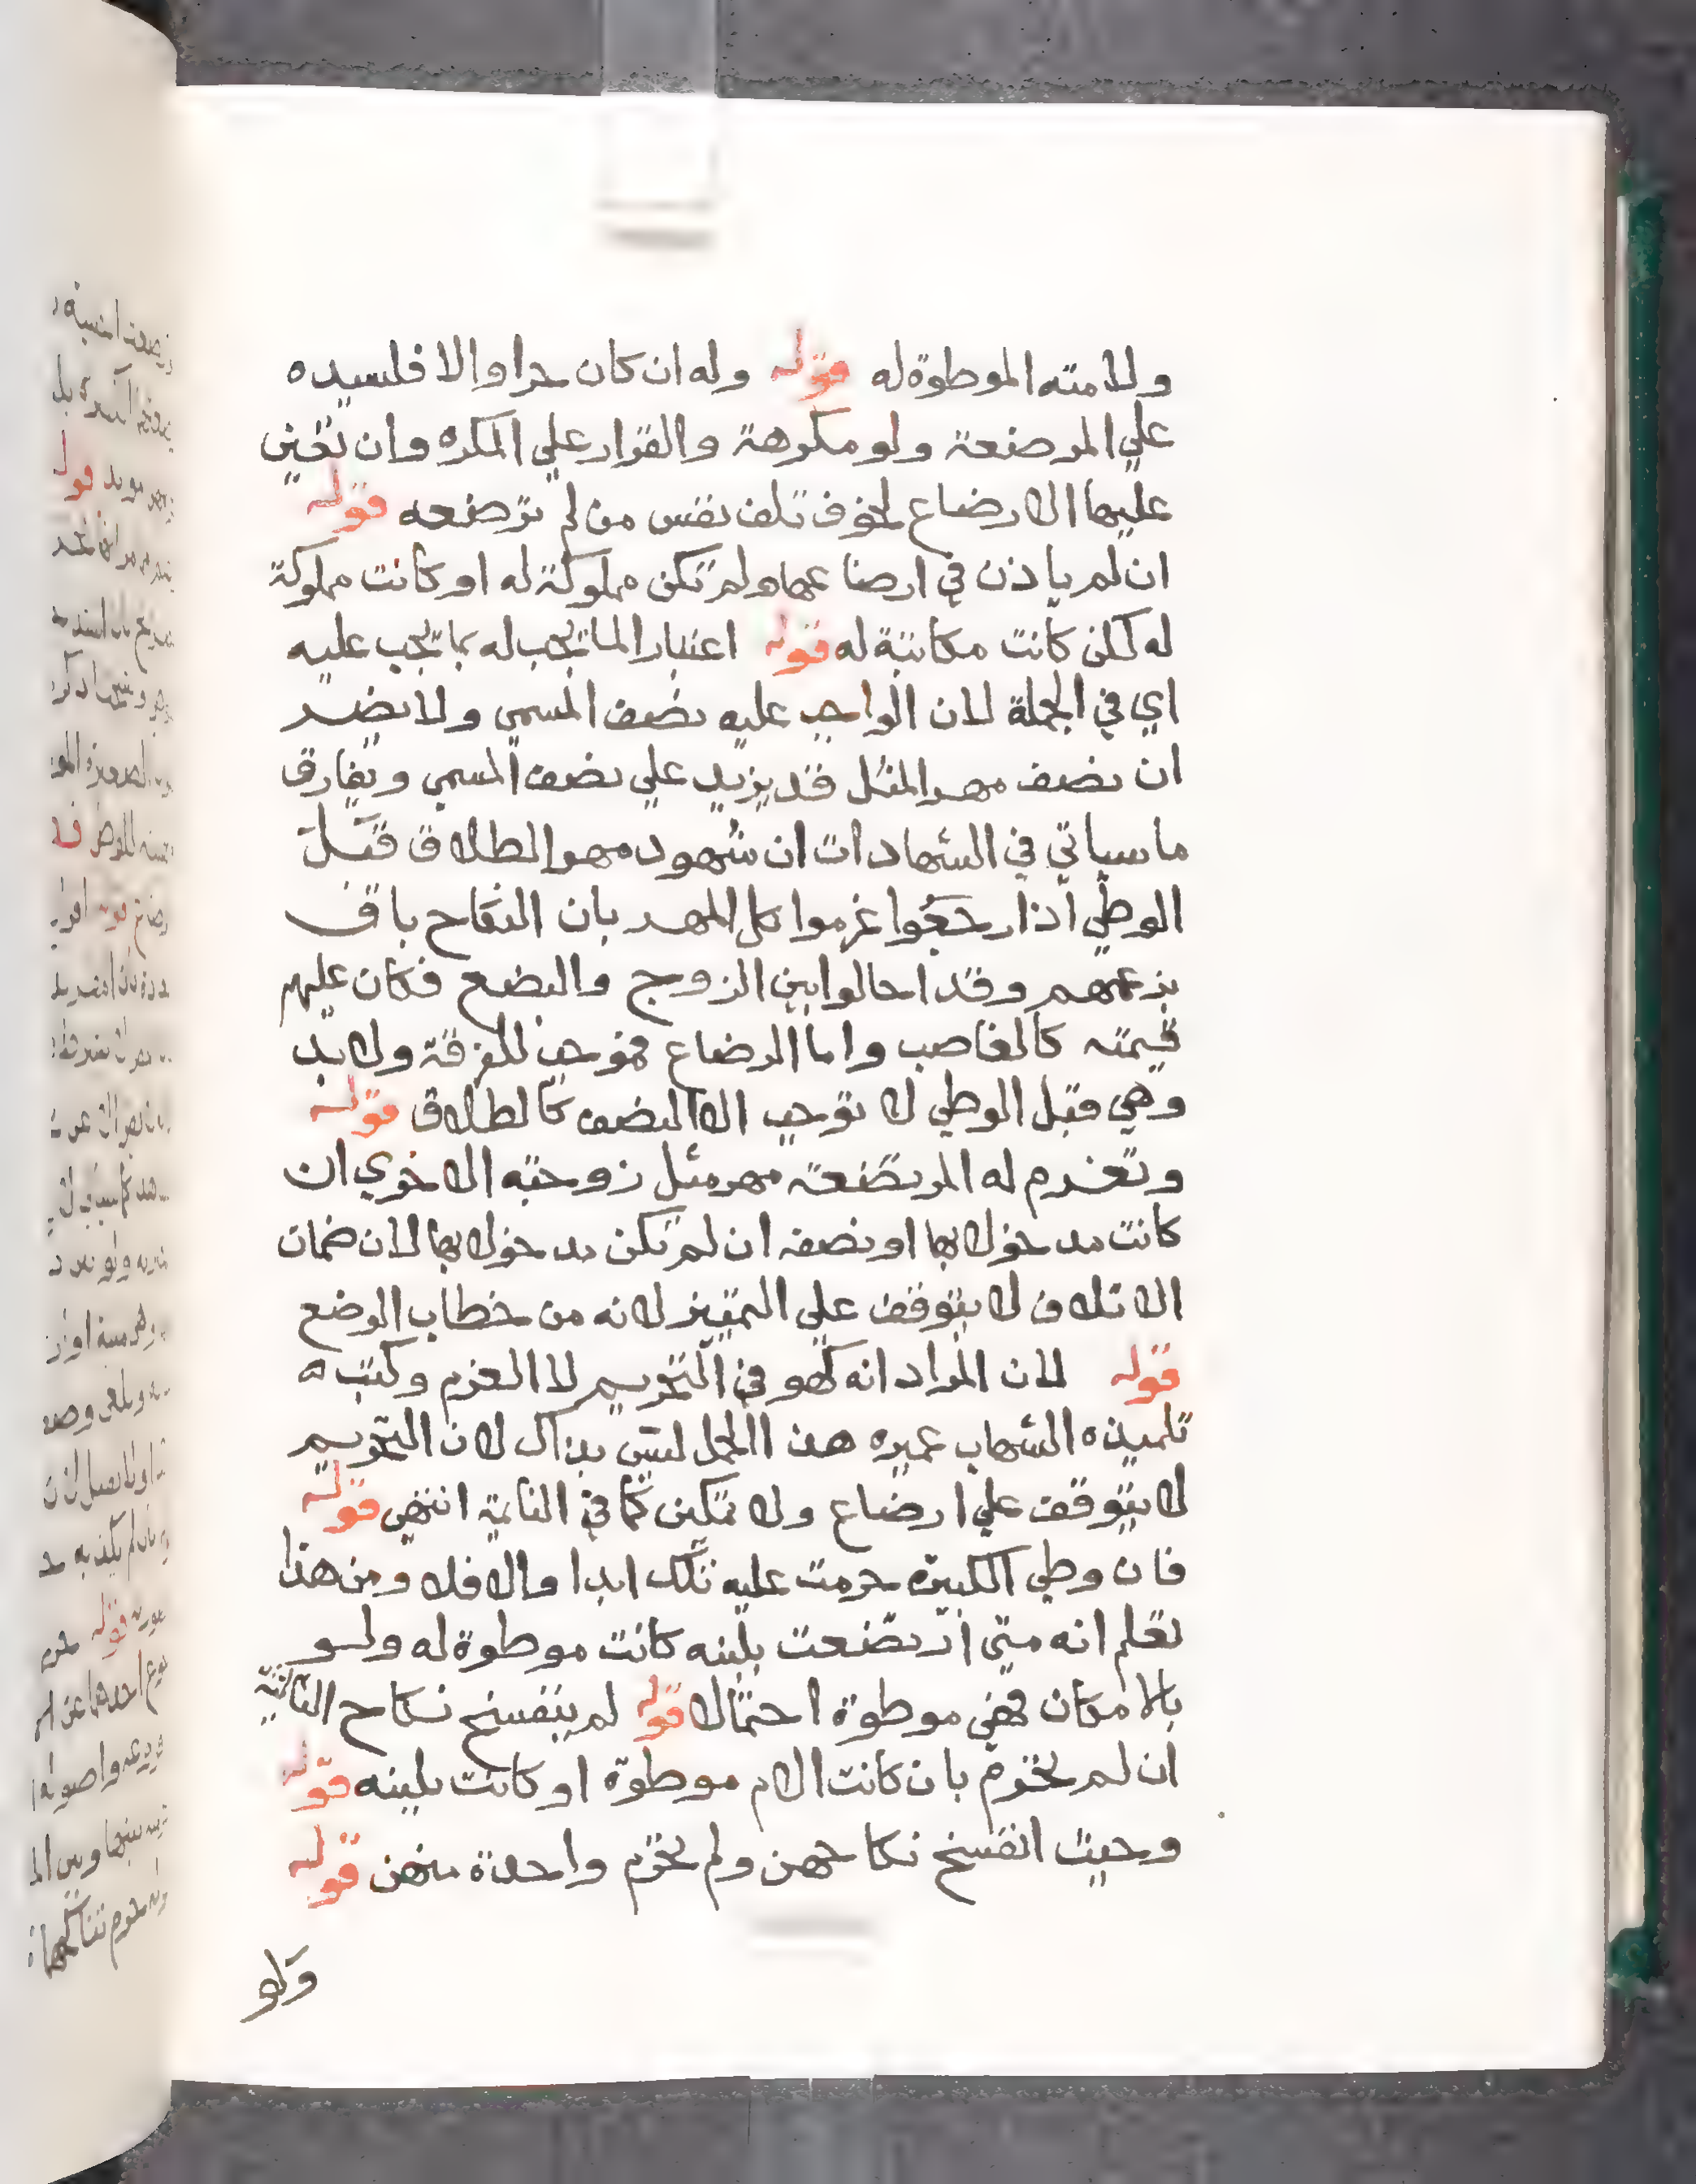 ولامته الموطوة له قوله وله ان كان حرا والا فلسيده
علي المرضعة ولو مكرهة والقرار علي المكره وان تعين
عليها الارضاع لخوف تلف نفس من لم ترضعه قوله
ان لم ياذن في ارضاعها ولم تكن مملوكة له او كانت مملوكة
له لكن كانت مكاتبة له قوله اعتبارا لما يجب له بما يجب عليه
اي في الجملة لان الواجب عليه نصف المسمي ولا يضر
ان نصف مهر المثل قد يزيد علي نصف المسمي ويفارق
ما سياتي في الشهادات ان شهود مهر الطلاق قبل
الوطي اذا رجعوا غرموا كل المهر بان النكاح باق
بزعمهم وقد احالوا بين الزوج والبضع فكان عليهم
قيمته كالغاصب واما الرضاع فموجب للفرقة ولا بد
وهي قبل الوطي لا توجب الا النصف كالطلاق قوله
وتغرم له المرتضعة مهر مثل زوجته الاخري ان
كانت مدخولا بها او نصفه ان لم تكن مدخولا بها لان ضمان
الاتلاف لا يتوقف علي التمييز لانه من خطاب الوضع
قوله لان المراد انه كهو في التحريم لا الغرم وكتب ه
تلميذه الشهاب عميره هذا الحمل ليس بذاك لان التحريم
لا يتوقف علي ارضاع ولا تمكين كما في النائمة انتهي قوله
فان وطي الكبيرة حرمت عليه تلك ابدا والا فلا ومن هذا
تعلم انه متي ارتضعت بلبنه كانت موطوة له ولو
بالامكان فهي موطوة احتمالا قوله لم ينفسخ نكاح الثانية
ان لم يحرم بان كانت الام موطوة او كانت بلبنه قوله
وحيث انفسخ نكاحهن ولم يحرم واحدة منهن قوله
ولو